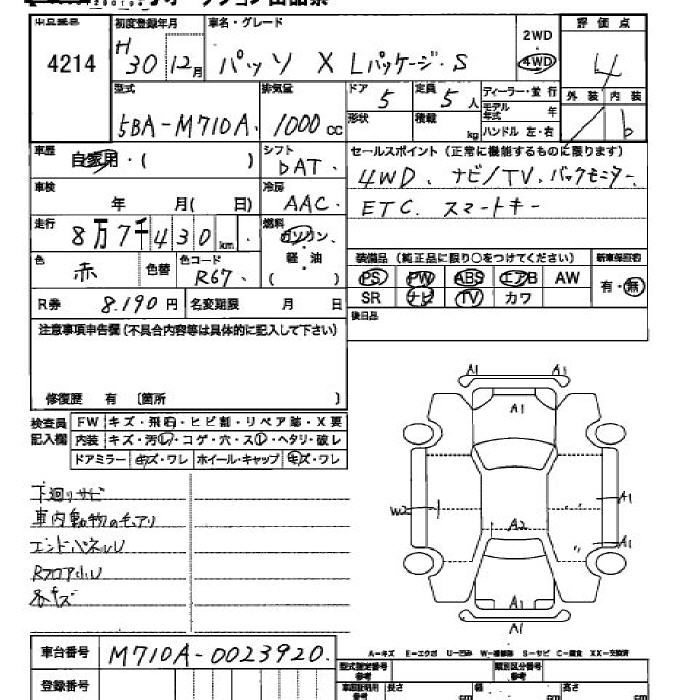 4214
初度登録年月 車名・グレード 評価点
H30 12月 パッソ X Lパッケージ・S 2WD 4WD 4
型式 排気量 ドア 定員 ディーラー・並行 外装 内装
5BA-M710A 1000cc 5 5人 モデル年式 年 b
形状 積載 kg ハンドル 左・右
車歴 自家用・( ) シフト DAT セールスポイント(正常に機能するものに限ります)
4WD、ナビ/TV、バックモニター、
車検 年 月( 日) 冷房 AAC
ETC、スマートキー
走行 8万7千430km 燃料 ガソリン 軽油 ( )
色 赤 色替 色コード R67
装備品(純正品に限り○をつけてください) 新車保証書
PS PW ABS エアB AW 有・無
SR ナビ TV カワ
R券 8,190円 名変期限 月 日
後日品
注意事項申告欄(不具合内容等は具体的に記入して下さい)
修復歴 有 〔箇所 〕
検査員記入欄 FW キズ・飛石・ヒビ割・リペア跡・X要
内装 キズ・汚レ・コゲ・穴・スレ・ヘタリ・破レ
ドアミラー キズ・ワレ ホイール・キャップ キズ・ワレ
下廻りサビ
エンドパネルU
Rフロア小U
A1 A1
A1
W2 A1
A2
A1
A1
A1
A-キズ E-エクボ U-凹ミ W-補修跡 S-サビ C-腐食 XX-交換済
車台番号 M710A-0023920
型式指定番号 参考 類別区分番号 参考
登録番号 長さ cm 幅 cm 高さ cm